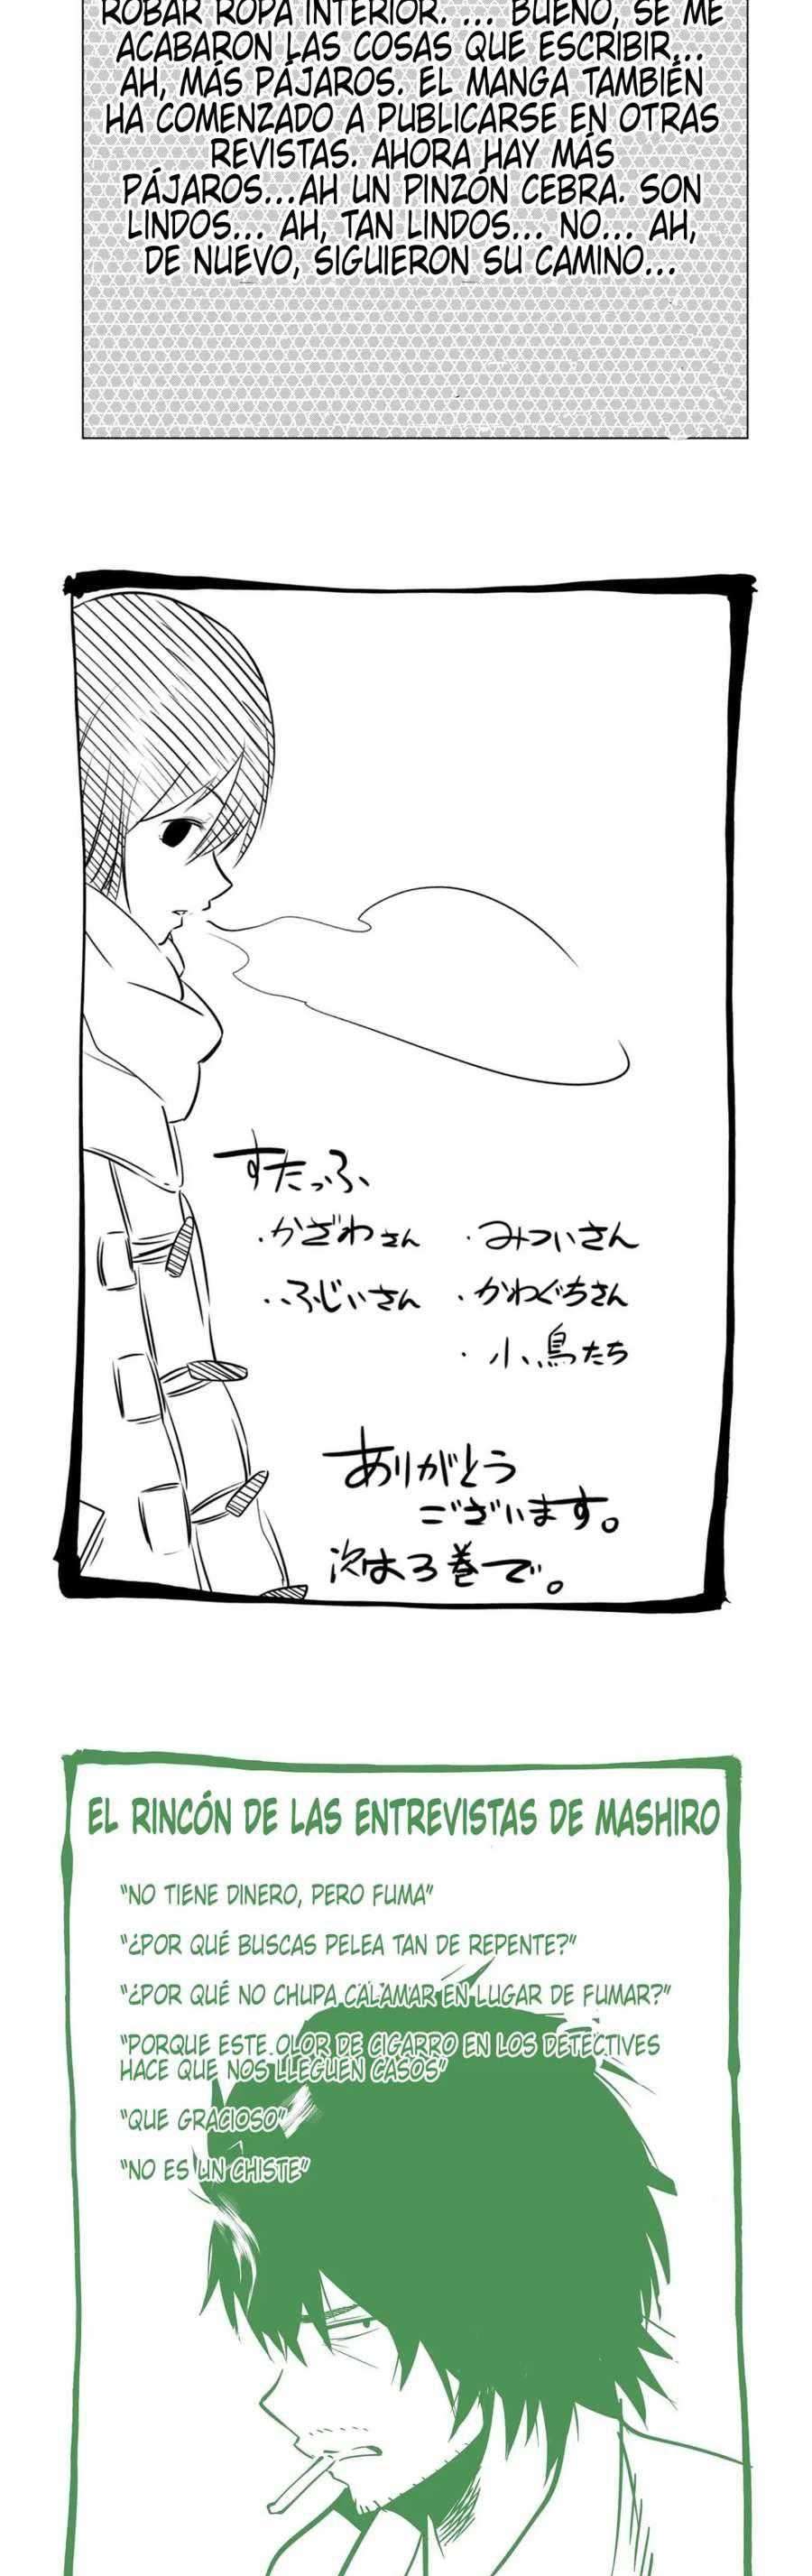 ROBAR ROPA INTERIOR. ... BUENO, SE ME
ACABARON LAS COSAS QUE ESCRIBIR...
AH, MÁS PÁJAROS. EL MANGA TAMBIÉN
HA COMENZADO A PUBLICARSE EN OTRAS
REVISTAS. AHORA HAY MÁS
PÁJAROS...AH UN PINZÓN CEBRA. SON
LINDOS... AH, TAN LINDOS... NO... AH,
DE NUEVO, SIGUIERON SU CAMINO...
すたっふ
・かざわさん ・みついさん
・ふじいさん ・かわぐちさん
・小鳥たち
ありがとう
ございます。
次は3巻で。
EL RINCÓN DE LAS ENTREVISTAS DE MASHIRO
"NO TIENE DINERO, PERO FUMA"
"¿POR QUÉ BUSCAS PELEA TAN DE REPENTE?"
"¿POR QUÉ NO CHUPA CALAMAR EN LUGAR DE FUMAR?"
"PORQUE ESTE OLOR DE CIGARRO EN LOS DETECTIVES
HACE QUE NOS LLEGUEN CASOS"
"QUE GRACIOSO"
"NO ES UN CHISTE"